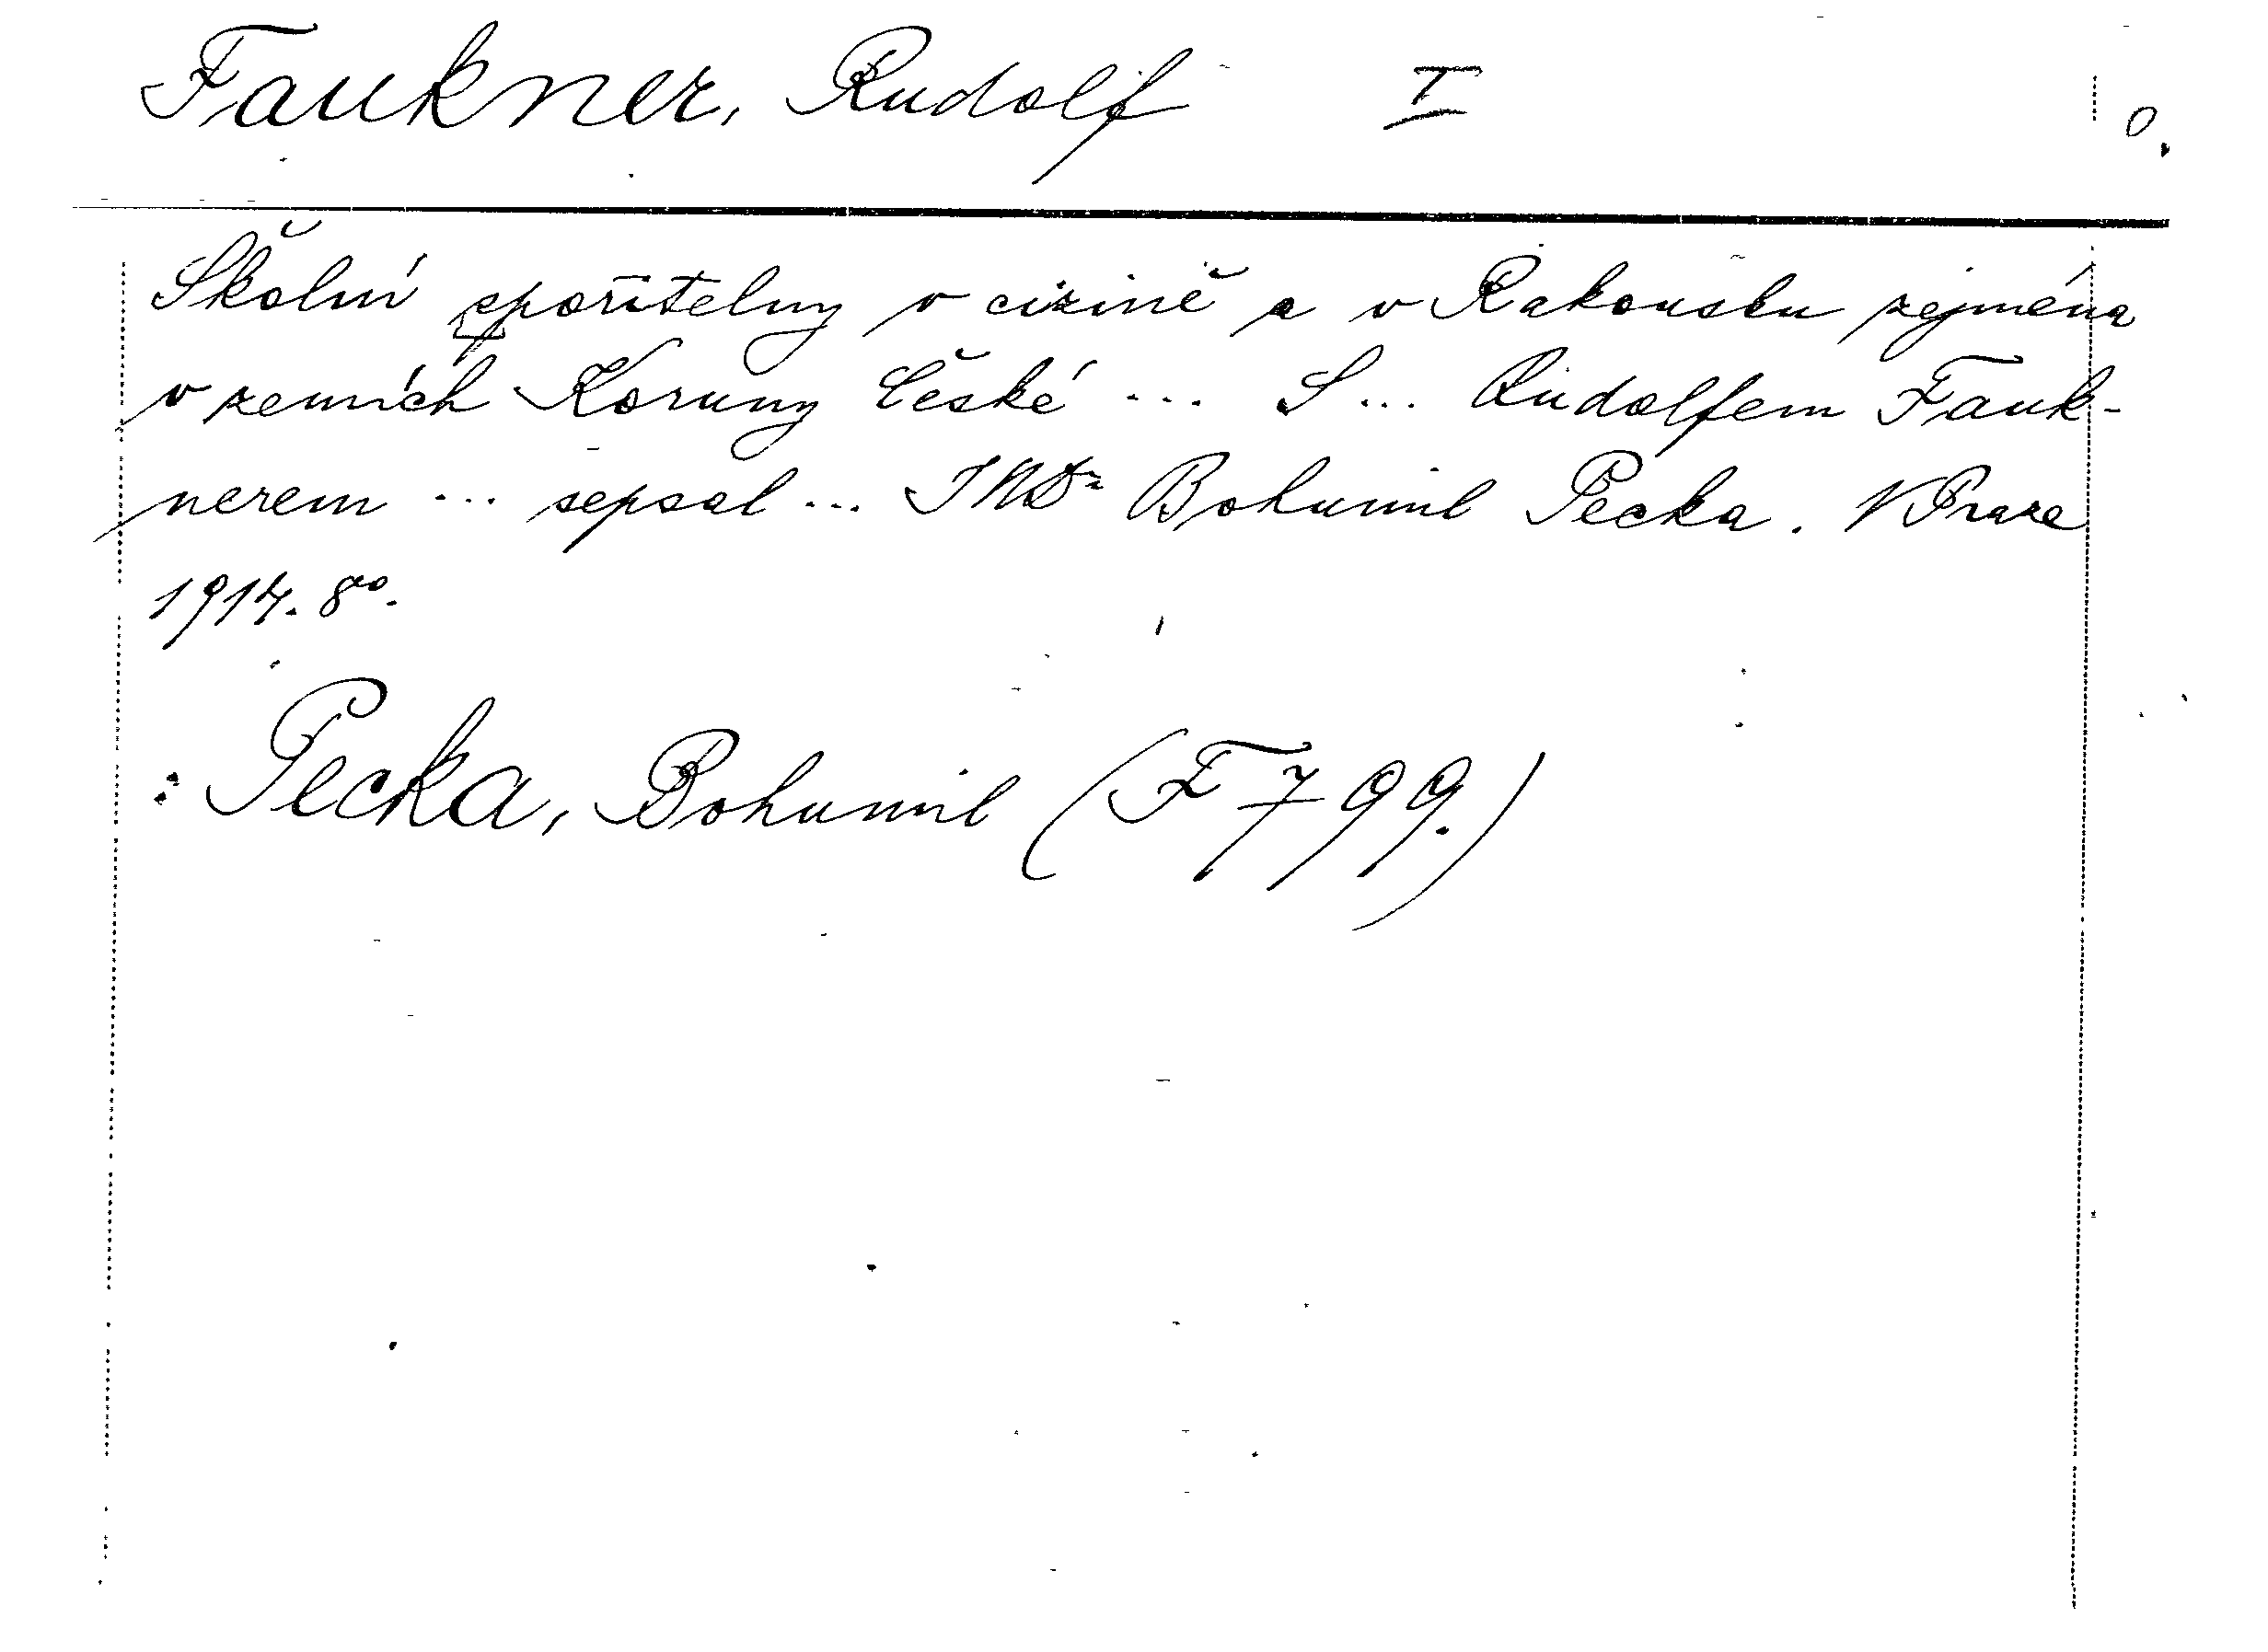 Faukner, Rudolf I o.
Školní spořitelny v cizině a v Rakousku zejména
v zemích Koruny České ... S ... Rudolfem Fauk-
nerem ... sepsal ... JUDr Bohumil Pecka. V Praze
1914. 8º.
: Pecka, Bohumil (F 799.)